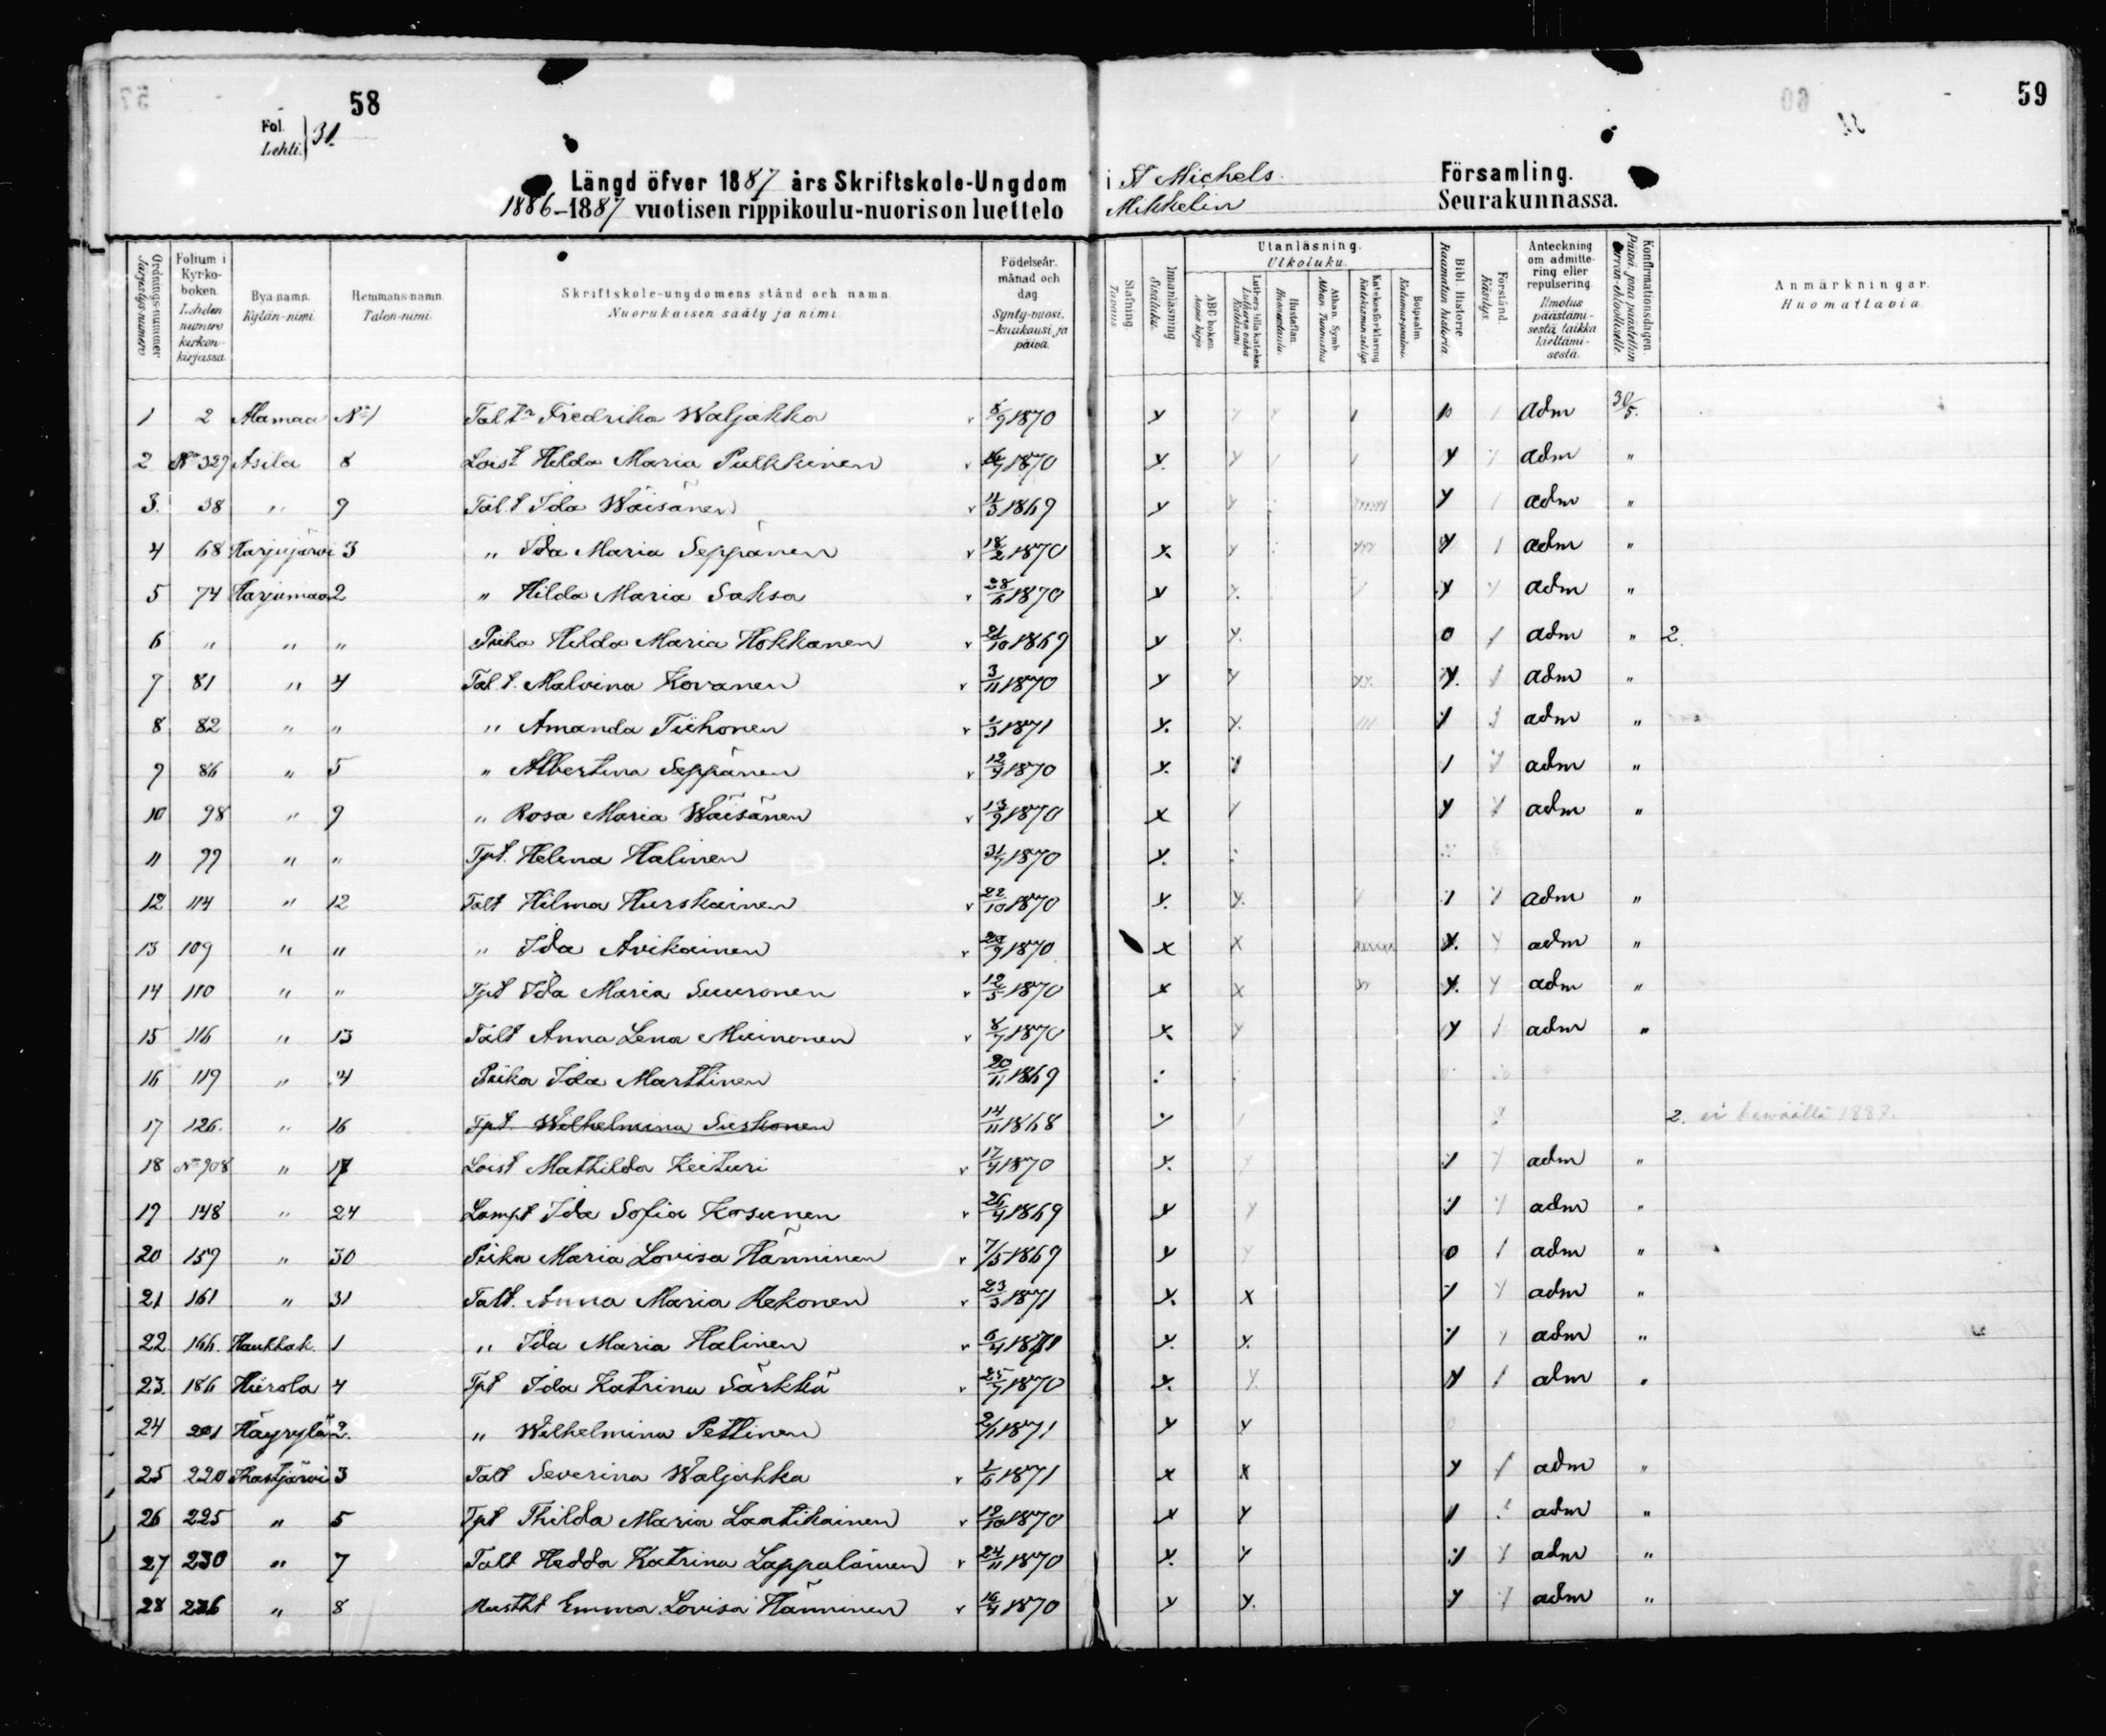 58
59
Fol.
Lehti. } 31.
Längd öfver 1887 års Skriftskole-Ungdom i St Michels Församling.
1886-1887 vuotisen rippikoulu-nuorison luettelo Mikkelin Seurakunnassa.
Ordnings-nummer Järjestys-numero
Folium i Kyrko-boken. Lehden numero kirkon-kirjassa.
Bya-namn. Kylän-nimi.
Hemmans-namn. Talon-nimi.
Skriftskole-ungdomens stånd och namn. Nuorukaisen sääty ja nimi.
Födelseår. månad och dag Synty-vuosi. -kuukausi ja päivä.
Stafning. Tavaus.
Innanläsning Sisäluku.
Utanläsning. Ulkoluku.
ABC boken. Aapis kirja.
Luthers lilla katekes Lutherin vähä Katekismi
Hustaflan. Huoneentaulu.
Athan. Symb. Athan. Tunnustus
Katekesförklaring Katekismin selitys.
Botpsalm. Katumus-psalmi.
Bibl. Historie Raamatun historia.
Förstånd. Käsitys.
Anteckning om admitte-ring eller repulsering. Ilmotus päästämi-sestä taikka kieltämi-sestä.
Konfirmationsdagen. Päivä, jona päästettiin Herran-ehtoolliselle.
Anmärkningar. Huomattavia.
1 2 Alamaa No 1 Talt Fredrika Waljakka 8/9 1870 y adm 30/5.
2 No 329 Asila 8 Loist Hilda Maria Pulkkinen 1870 y y y adm "
3. 38 " 9 Tal.t Ida Wäisänen 11/3 1869 y y y adm "
4 68 Harjujärvi 3 " Ida Maria Seppänen 18/2 1870 x y y adm "
5 74 Harjumaa 2 " Hilda Maria Saksa 28/6 1870 y y y adm "
6 " " " Piika Hilda Maria Hokkanen 21/10 1869 y y 0 adm " 2.
7 81 " 4 Tal.t. Malvina Kovanen 3/11 1870 y y y adm "
8 82 " " " Amanda Tiihonen 1/3 1871 y y adm "
9 86 " 5 " Albertina Seppänen 12/9 1870 y adm "
10 98 " 9 " Rosa Maria Wäisänen 13/9 1870 x y adm "
11 99 " " Tpt. Helena Halinen 31/7 1870 y
12 114 " 12 Talt Hilma Hurskainen 22/10 1870 y y adm "
13 109 " " " Ida Avikainen 1870 x x y adm "
14 110 " " Tpt Ida Maria Suuronen 12/5 1870 x x y adm "
15 116 " 13 Talt Anna Lena Muinonen 8/7 1870 x y y adm "
16 119 " Piika Ida Marttinen 20/11 1869
17 126. " 16 Tpt. Wilhelmina Sieskonen 14/11 1868 y 2. ei keväällä 1887.
18 No 908 " 17 Loist Mathilda Keituri 17/4 1870 y adm "
19 148 " 24 Lampt Ida Sofia Kosunen 26/4 1869 y y adm "
20 159 " 30 Piika Maria Lovisa Hänninen 7/5 1869 y y 0 adm "
21 161 " 31 Talt. Anna Maria Rekonen 23/3 1871 x x y adm "
22 166. Haukkak. 1 " Ida Maria Halinen 6/4 1871 y y y adm "
23. 186 Hiirola 4 Tpt Ida Katrina Särkkä 25/7 1870 x y y adm "
24 201 Häyrylä 2. " Wilhelmina Pettinen 2/1 1871 y y
25 220 Ihastjärvi 3 Talt Severina Waljakka 1/6 1871 x x y adm "
26 225 " 5 Tpt Thilda Maria Laatikainen 12/10 1870 x y adm "
27 230 " 7 Talt Hedda Katrina Lappalainen 24/11 1870 y y y adm "
28 236 " 8 Emma Lovisa Hänninen 16/4 1870 y y y adm "